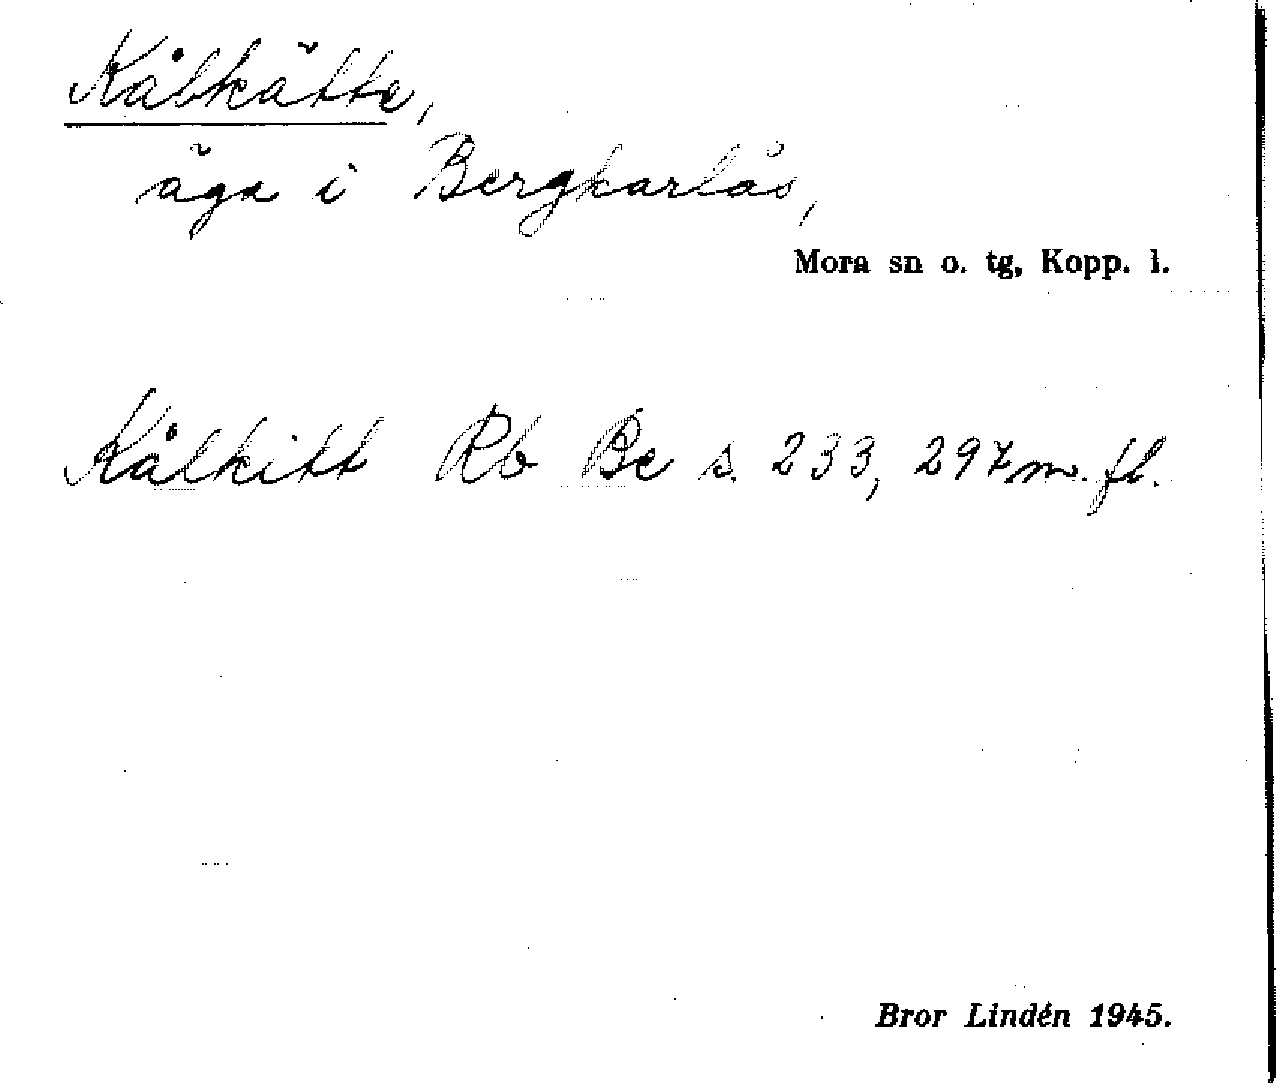 Kålkätte,
äga i Bergkarlås,
Mora sn o. tg, Kopp. l.
Kålkitt Rb Be s. 233, 297 m. fl.
Bror Lindén 1945.